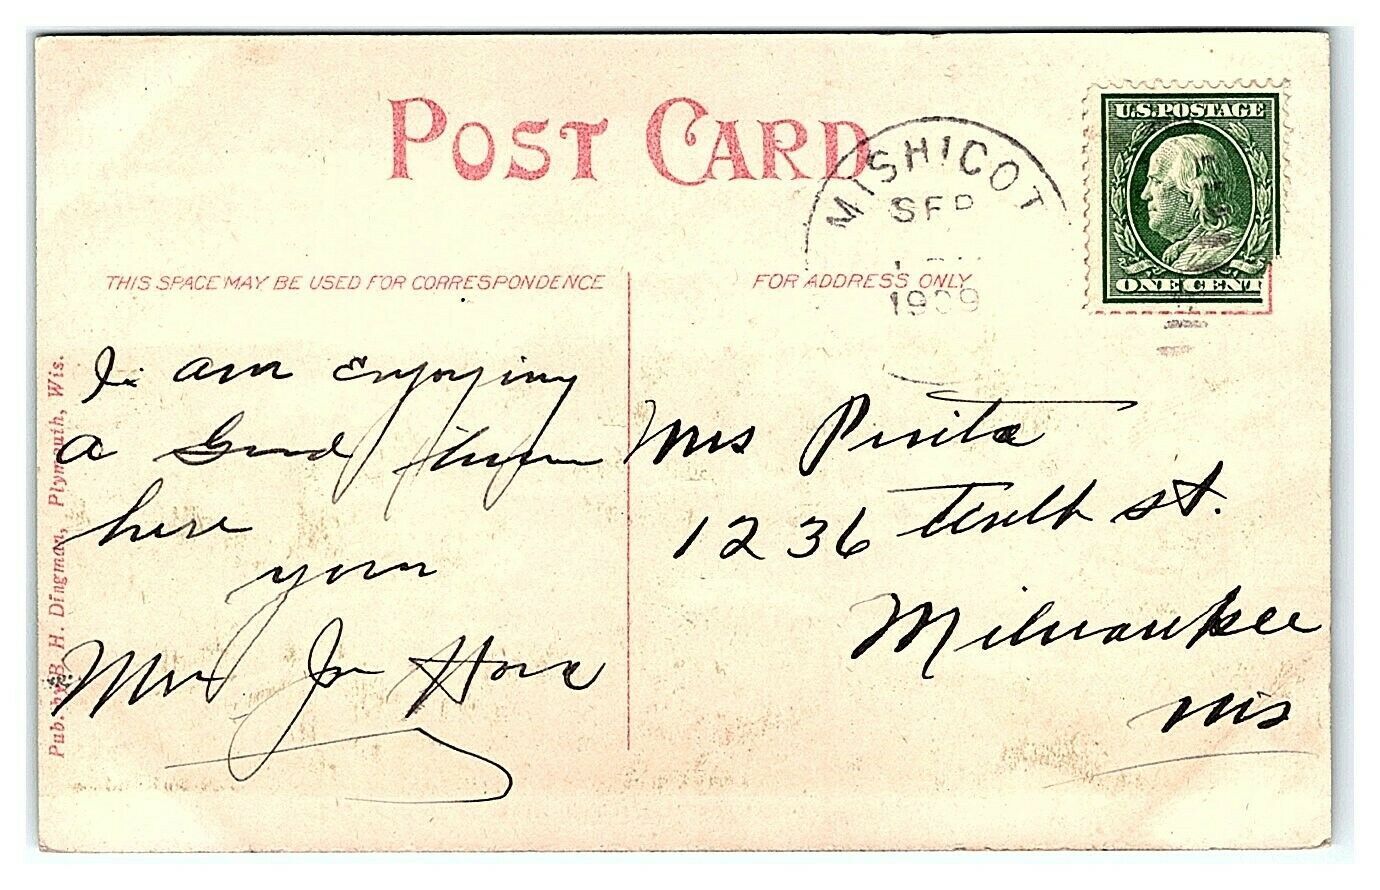 POST CARD
MISHICOT
SEP
1909
U.S. POSTAGE
ONE CENT
THIS SPACE MAY BE USED FOR CORRESPONDENCE
FOR ADDRESS ONLY
I am Enjoying
a Good time
here
your
Mrs Jo
Mrs
1236 st.
Milwaukee
Wis
Pub. by B. H. Dingman, Plymouth, Wis.